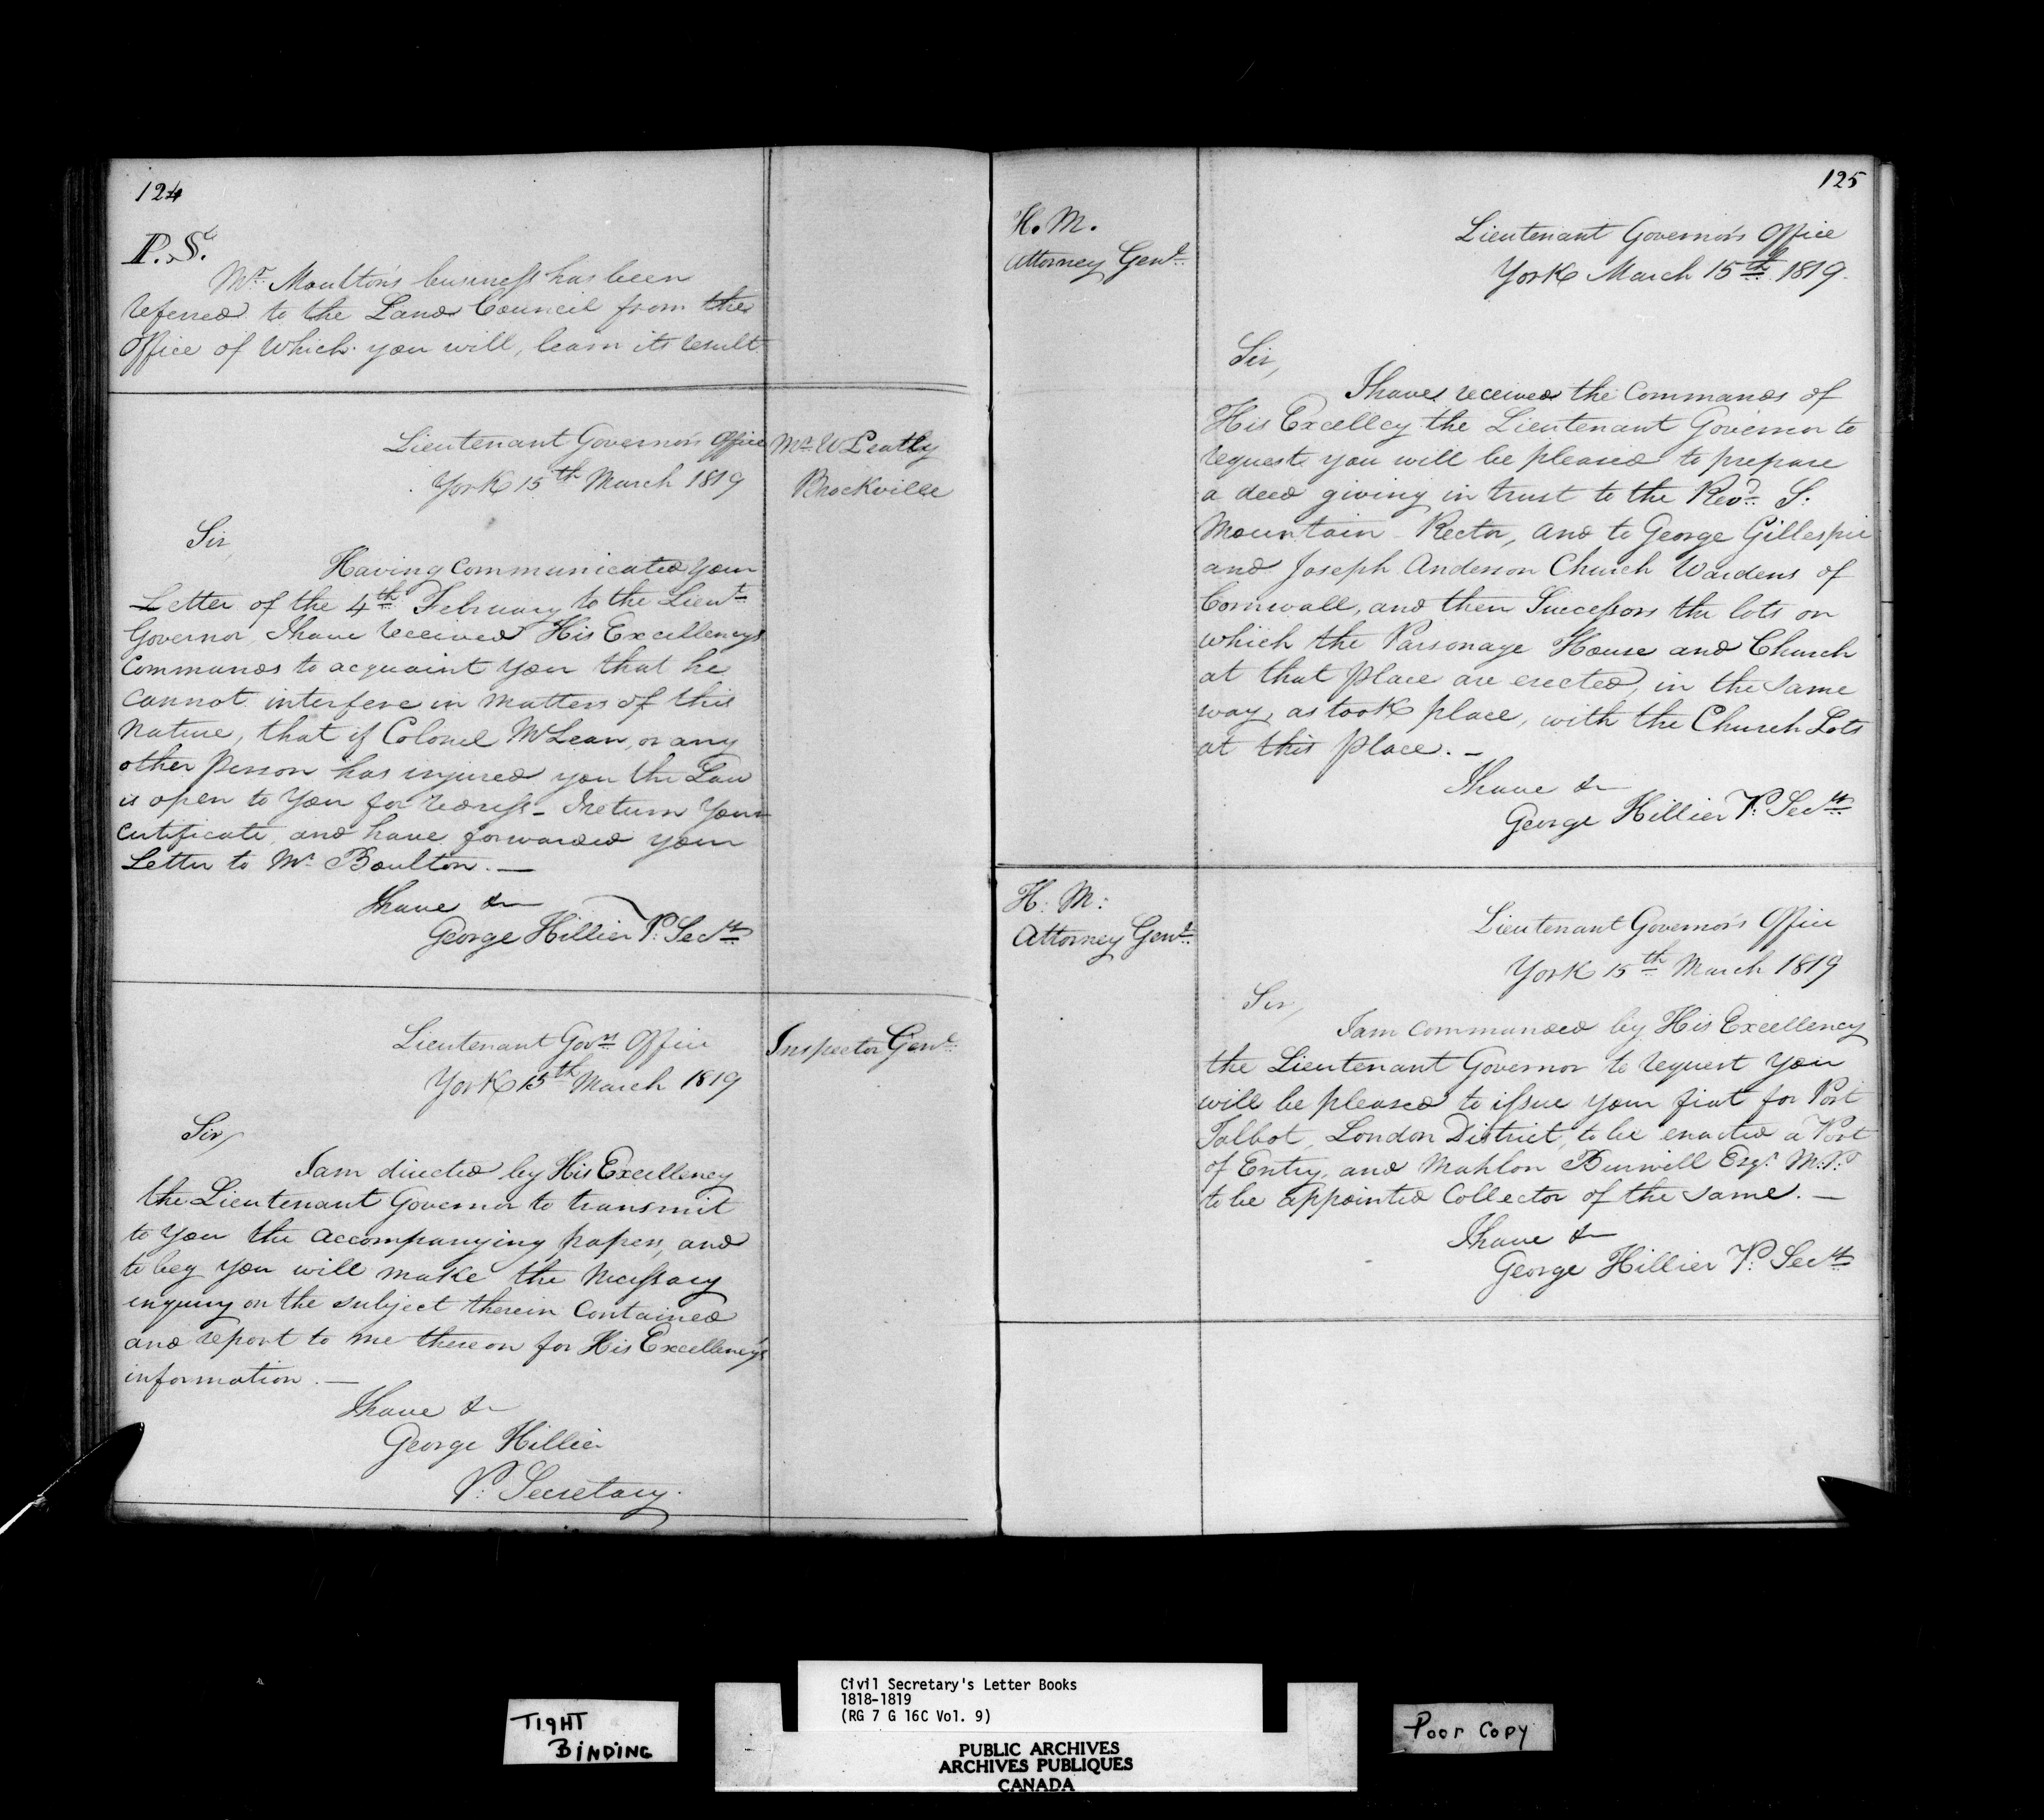 124
P.S.
Mr. Moulton's business has been
referred to the Land Council from the
Office of Which you will, learn its result.
Lieutenant Governor's Office
York 15th March 1819
Mr. W Leatly
Brockville
Sir,
Having Communicated Your
Letter of the 4th February to the Lieut.
Governor, I have received His Excellency's
Commands to acquaint You that he
Cannot interfere in Matters of this
Nature, that if Colonel McLean, or any
other Person has injured you the Law
is open to You for redress - I return Your
Certificate, and have forwarded your
Letter to Mr. Boulton. —
I have &
George Hillier P. Secy.
Lieutenant Govrs. Office
York 15th March 1819
Inspector Genl.
Sir,
I am directed by His Excellency
the Lieutenant Governor to transmit
to You the accompanying papers, and
to beg you will make the Necessary
inquiry on the subject therein Contained
and report to me thereon for His Excellency's
information. —
I have &
George Hillier
P. Secretary.
125
H. M.
Attorney Genl.
Lieutenant Governor's Office
York March 15th 1819.
Sir,
I have received the Commands of
His Excellcy the Lieutenant Governor to
request you will be pleased to prepare
a deed giving in trust to the Revd. S.
Mountain Rector, and to George Gillespie
and Joseph Anderson Church Wardens of
Cornwall, and their Successors the lots on
which the Parsonage House and Church
at that Place are erected, in the same
way, as took place, with the Church Lots
at this place. —
I have &
George Hillier P. Secy.
H. M.
Attorney Genl.
Lieutenant Governor's Office
York 15th March 1819
Sir,
I am commanded by His Excellency
the Lieutenant Governor to request You
will be pleased to issue your fiat for Port
Talbot, London District, to be enacted a Port
of Entry, and Mahlon Burwill Esqr. M.P.
to be appointed Collector of the same. —
I have &
George Hillier P. Secy.
TIGHT
BINDING
Civil Secretary's Letter Books
1818-1819
(RG 7 G 16C Vol. 9)
PUBLIC ARCHIVES
ARCHIVES PUBLIQUES
CANADA
Poor Copy